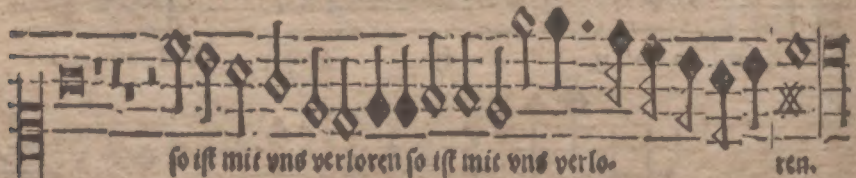 so ist mit vns verloren so ist mit vns verlo- ren.